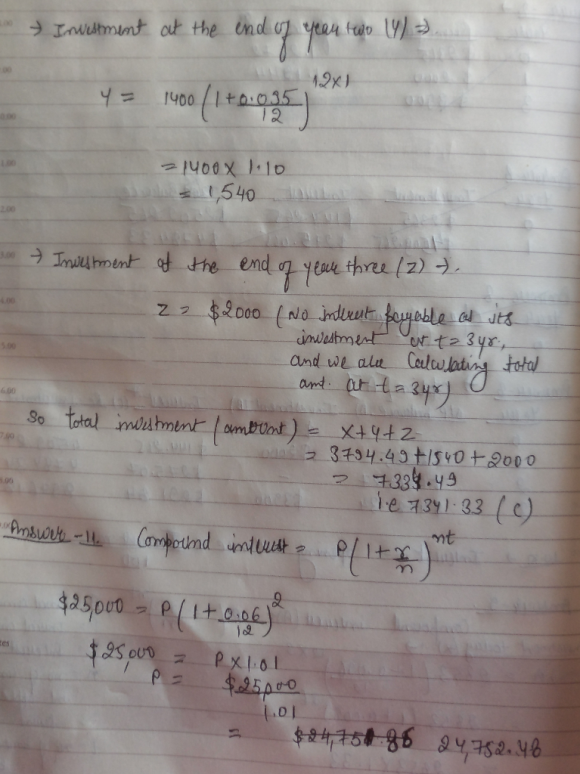 → Investment at the end of year two (Y) ⇒
Y = 1400 (1+0.095/12)^12×1
= 1400 × 1.10
= 1,540
→ Investment at the end of year three (Z) →.
Z = $2000 (No interest payable as its
investment at t = 3yr,
and we are Calculating total
amt. at t = 3yr)
So total investment (amount) = X+Y+Z
= 3794.49+1540+2000
= 7334.49
i.e 7341.33 (C)
Answer-11. Compound interest = P(1+r/n)^nt
$25,000 = P(1+0.06/12)^2
$25,000 = P×1.01
P = $25,000/1.01
= 24,752.48